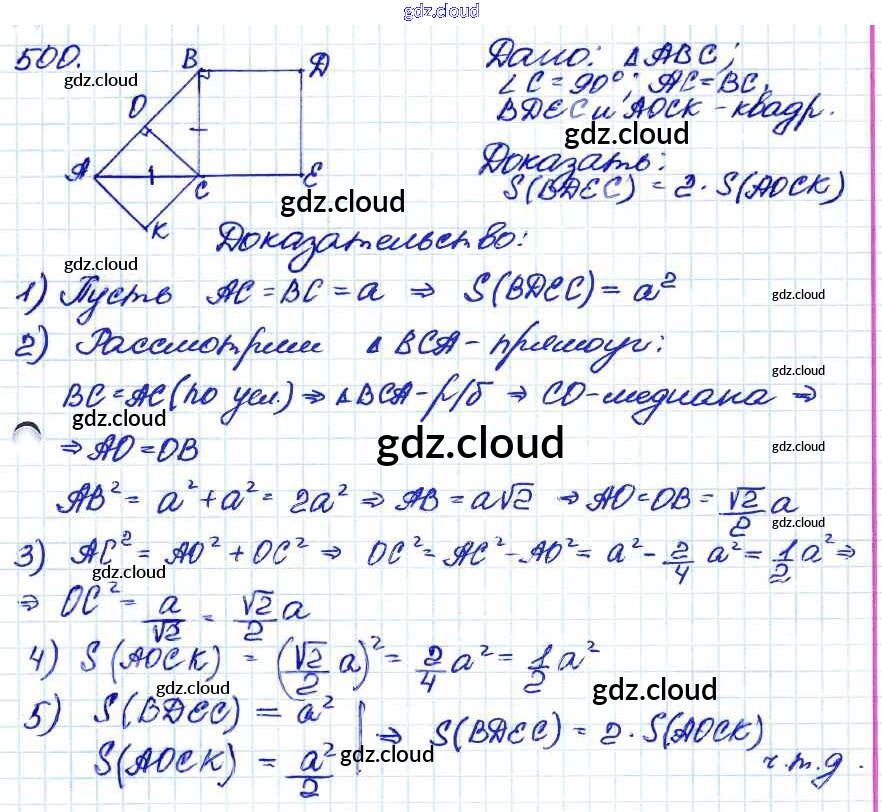 gdz.cloud
500.
gdz.cloud
B
D
O
A
C
E
K
gdz.cloud
Дано: △ABC;
∠C = 90°; AC = BC,
BDEC и AOCK - квадр.
gdz.cloud
Доказать:
S(BDEC) = 2 · S(AOCK)
Доказательство:
gdz.cloud
1) Пусть AC = BC = a ⇒ S(BDEC) = a²
gdz.cloud
2) Рассмотрим △BCA - прямоуг:
gdz.cloud
BC = AC (по усл.) ⇒ △BCA - р/б ⇒ CO - медиана ⇒
gdz.cloud
⇒ AO = OB
gdz.cloud
gdz.cloud
AB² = a² + a² = 2a² ⇒ AB = a√2 ⇒ AO = OB = √2/2 a
gdz.cloud
3) AC² = AO² + OC² ⇒ OC² = AC² - AO² = a² - 2/4 a² = 1/2 a² ⇒
gdz.cloud
⇒ OC² = a/√2 = √2/2 a
4) S(AOCK) = (√2/2 a)² = 2/4 a² = 1/2 a²
gdz.cloud
gdz.cloud
5) S(BDEC) = a²
S(AOCK) = a²/2
gdz.cloud
⇒ S(BDEC) = 2 · S(AOCK)
ч.т.д.